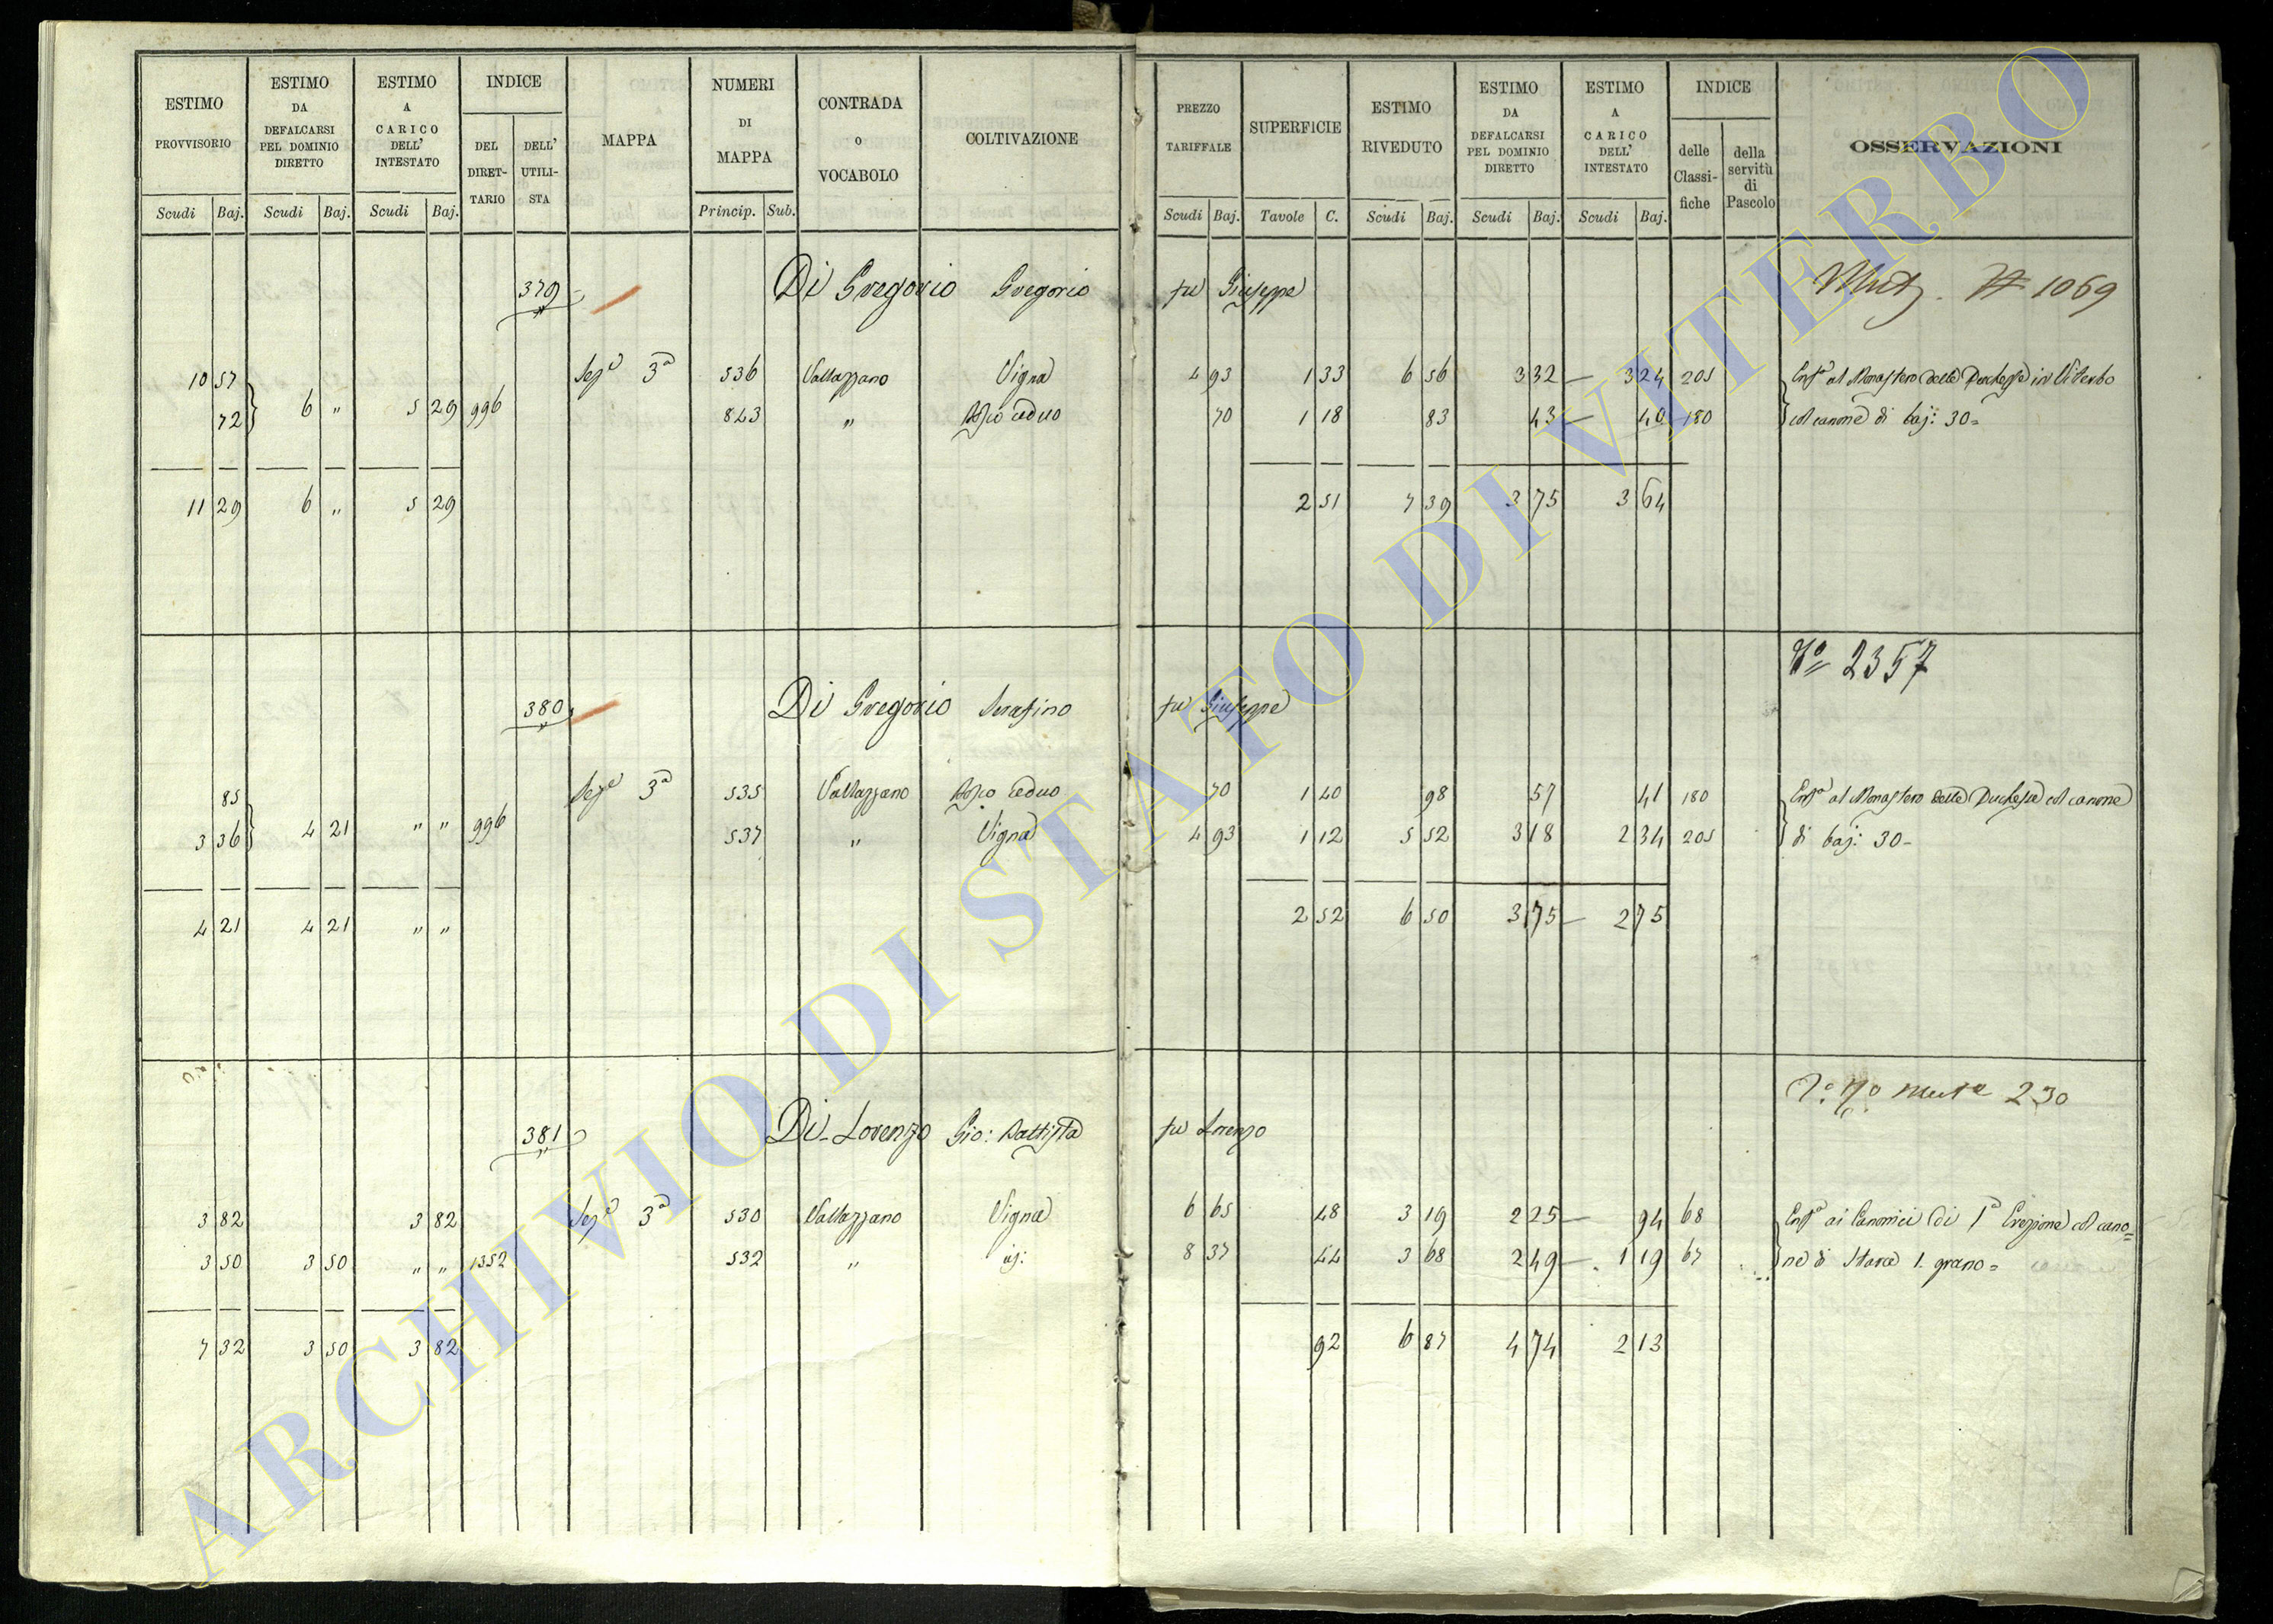 ESTIMO PROVVISORIO | ESTIMO DA DEFALCARSI PEL DOMINIO DIRETTO | ESTIMO A CARICO DELL' INTESTATO | INDICE DEL DIRETTARIO | DELL' UTILISTA | MAPPA | NUMERI DI MAPPA | CONTRADA o VOCABOLO | COLTIVAZIONE | PREZZO TARIFFALE | SUPERFICIE | ESTIMO RIVEDUTO | ESTIMO DA DEFALCARSI PEL DOMINIO DIRETTO | ESTIMO A CARICO DELL' INTESTATO | INDICE delle Classifiche | della servitù di Pascolo | OSSERVAZIONI
Scudi Baj. Scudi Baj. Scudi Baj. Princip. Sub. Scudi Baj. Tavole C. Scudi Baj. Scudi Baj. Scudi Baj.
379 Di Gregorio Gregorio fu Giuseppe № 1069
10 57 Sez.e 3a 536 Vallazzano Vigna 4 93 1 33 6 56 3 32 3 24 205 Enf.a al Monastero delle Duchesse in Viterbo
72 6 " 5 29 996 843 " Bosco ceduo 70 1 18 83 43 40 180 col canone di baj: 30=
11 29 6 " 5 29 2 51 7 39 3 75 3 64
N° 2357
380 Di Gregorio Serafino fu Giuseppe
85 Sez.e 3a 535 Vallazzano Bosco Ceduo 70 1 40 98 57 41 180 Enf.a al Monastero delle Duchesse col canone
3 36 4 21 " " 996 537 " Vigna 4 93 1 12 5 52 3 18 2 34 205 di baj: 30-
4 21 4 21 " " 2 52 6 50 3 75 2 75
230
381 Di Lorenzo Gio: Battista fu Lorenzo
3 82 3 82 Sez.e 3a 530 Vallazzano Vigna 6 65 48 3 19 2 25 94 68 Enf.a ai Canonici di 1a Erezione col cano=
3 50 3 50 " " 1352 532 " id: 8 37 44 3 68 2 49 1 19 67 ne di Stara 1. grano=
7 32 3 50 3 82 92 6 87 4 74 2 13
ARCHIVIO DI STATO DI VITERBO